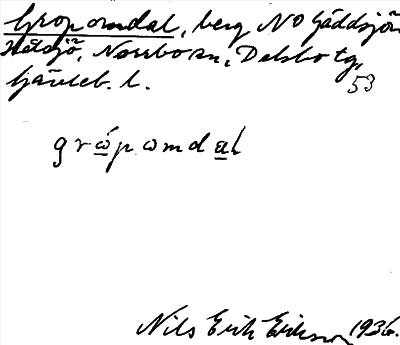 Gropomdal, berg NO Gäddsjön
Hålsjö, Norrbo sn, Delsbo tg,
Gävleb. l. 53
gròpomdal
Nils Erik Erikson 1936.